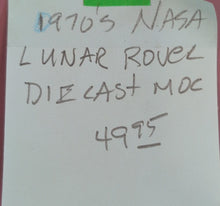 1970's NASA
LUNAR ROVER
DIECAST MOC
49 95